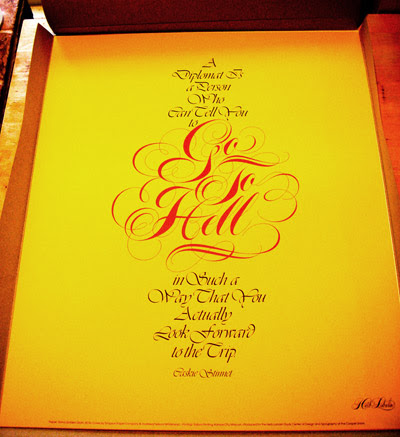 A
Diplomat Is
a Person
Who
Can Tell You
to
Go
To
Hell
in Such a
Way That You
Actually
Look Forward
to the Trip
Caskie Stinnet
Herb Lubalin